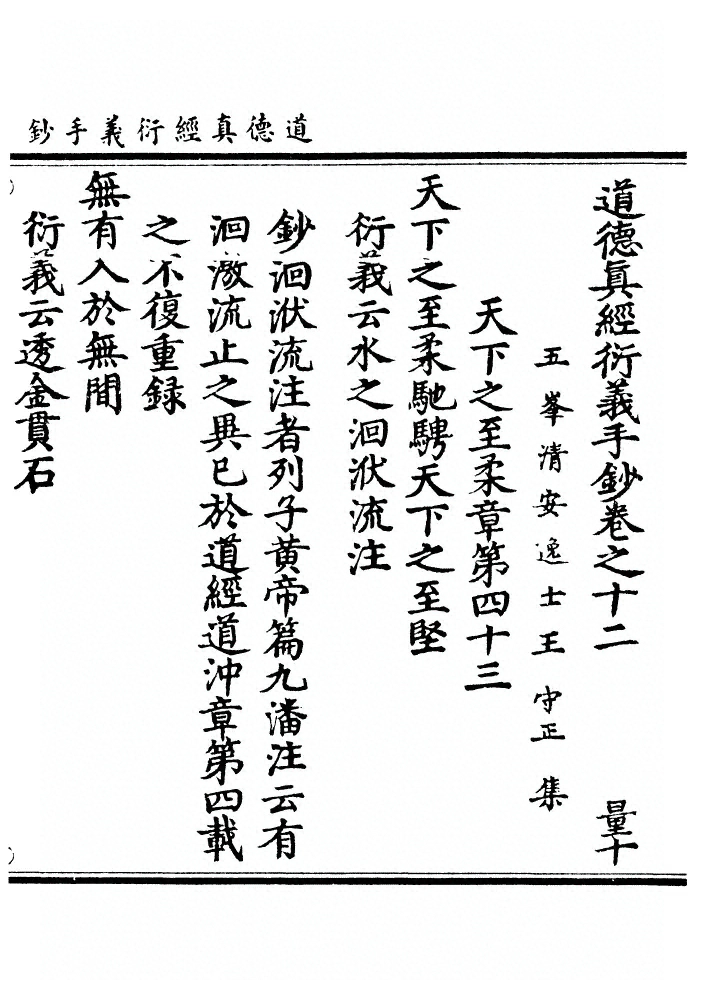 道德真經衍義手鈔
道德眞經衍義手鈔卷之十二 量十
五峯清安逸士王守正集
天下之至柔章第四十三
天下之至柔馳騁天下之至堅
衍義云水之洄洑流注
鈔洄洑流注者列子黃帝篇九潘注云有
洄激流止之異已於道經道沖章第四載
之不復重録
無有入於無間
衍義云透金貫石